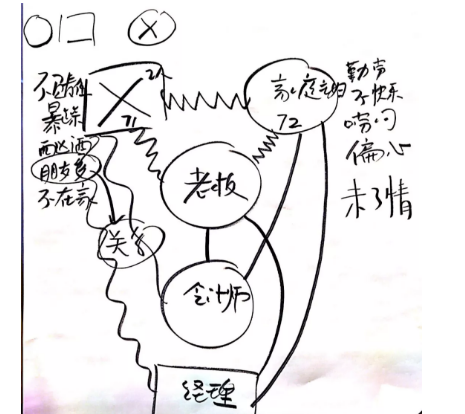 暴躁
酗酒
朋友多
不在家
71
家庭主妇
72
勤劳
不快乐
唠叨
偏心
未了情
老板
关系
会计师
经理